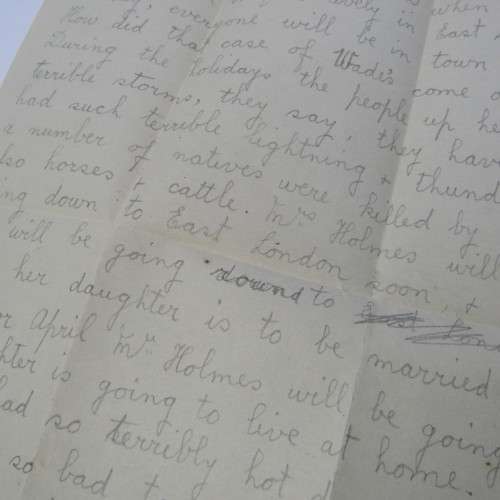 everyone will be in East
How did that case of Wade's come
During the holidays the people up he
terrible storms, they say, they hav
had such terrible lightning + thund
a number of natives were killed by
lso horses + cattle. Mrs Holmes will
ing down to East London soon, +
will be going round to
her daughter is to be married
r April Mrs Holmes will be going
hter is going to live at home.
ad so terribly hot
so bad +